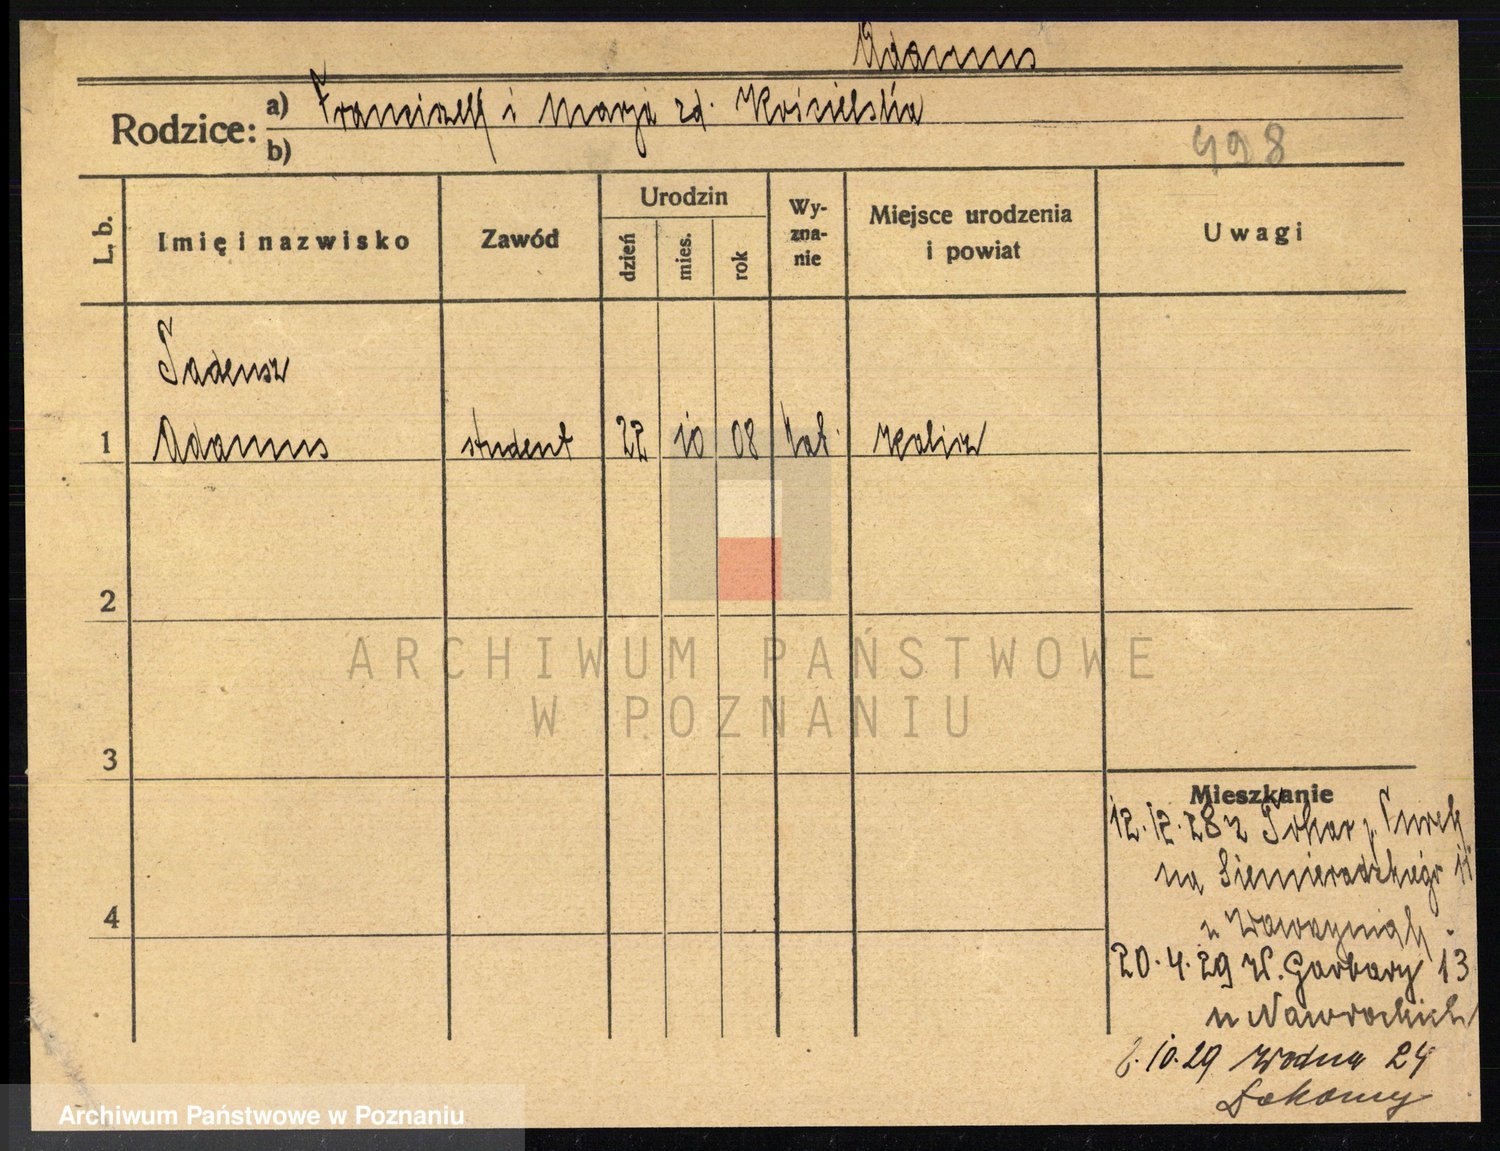 Adamus
Rodzice: a) Franciszek i Marja zd. Kościelska
b)
498
L. b.
Imię i nazwisko
Zawód
Urodzin
dzień
mies.
rok
Wy-
zna-
nie
Miejsce urodzenia
i powiat
Uwagi
Tadeusz
1 Adamus student 22 10 08 kat. Kalisz
2
ARCHIWUM PAŃSTWOWE
W POZNANIU
3
Mieszkanie
12.12.28 z Tokar p. Turek
na Siemieradzkiego 11
u Wawrzyniak
20.4.29 W. Garbary 13
u Nawrockich
4
10.29 Wodna 24
Archiwum Państwowe w Poznaniu